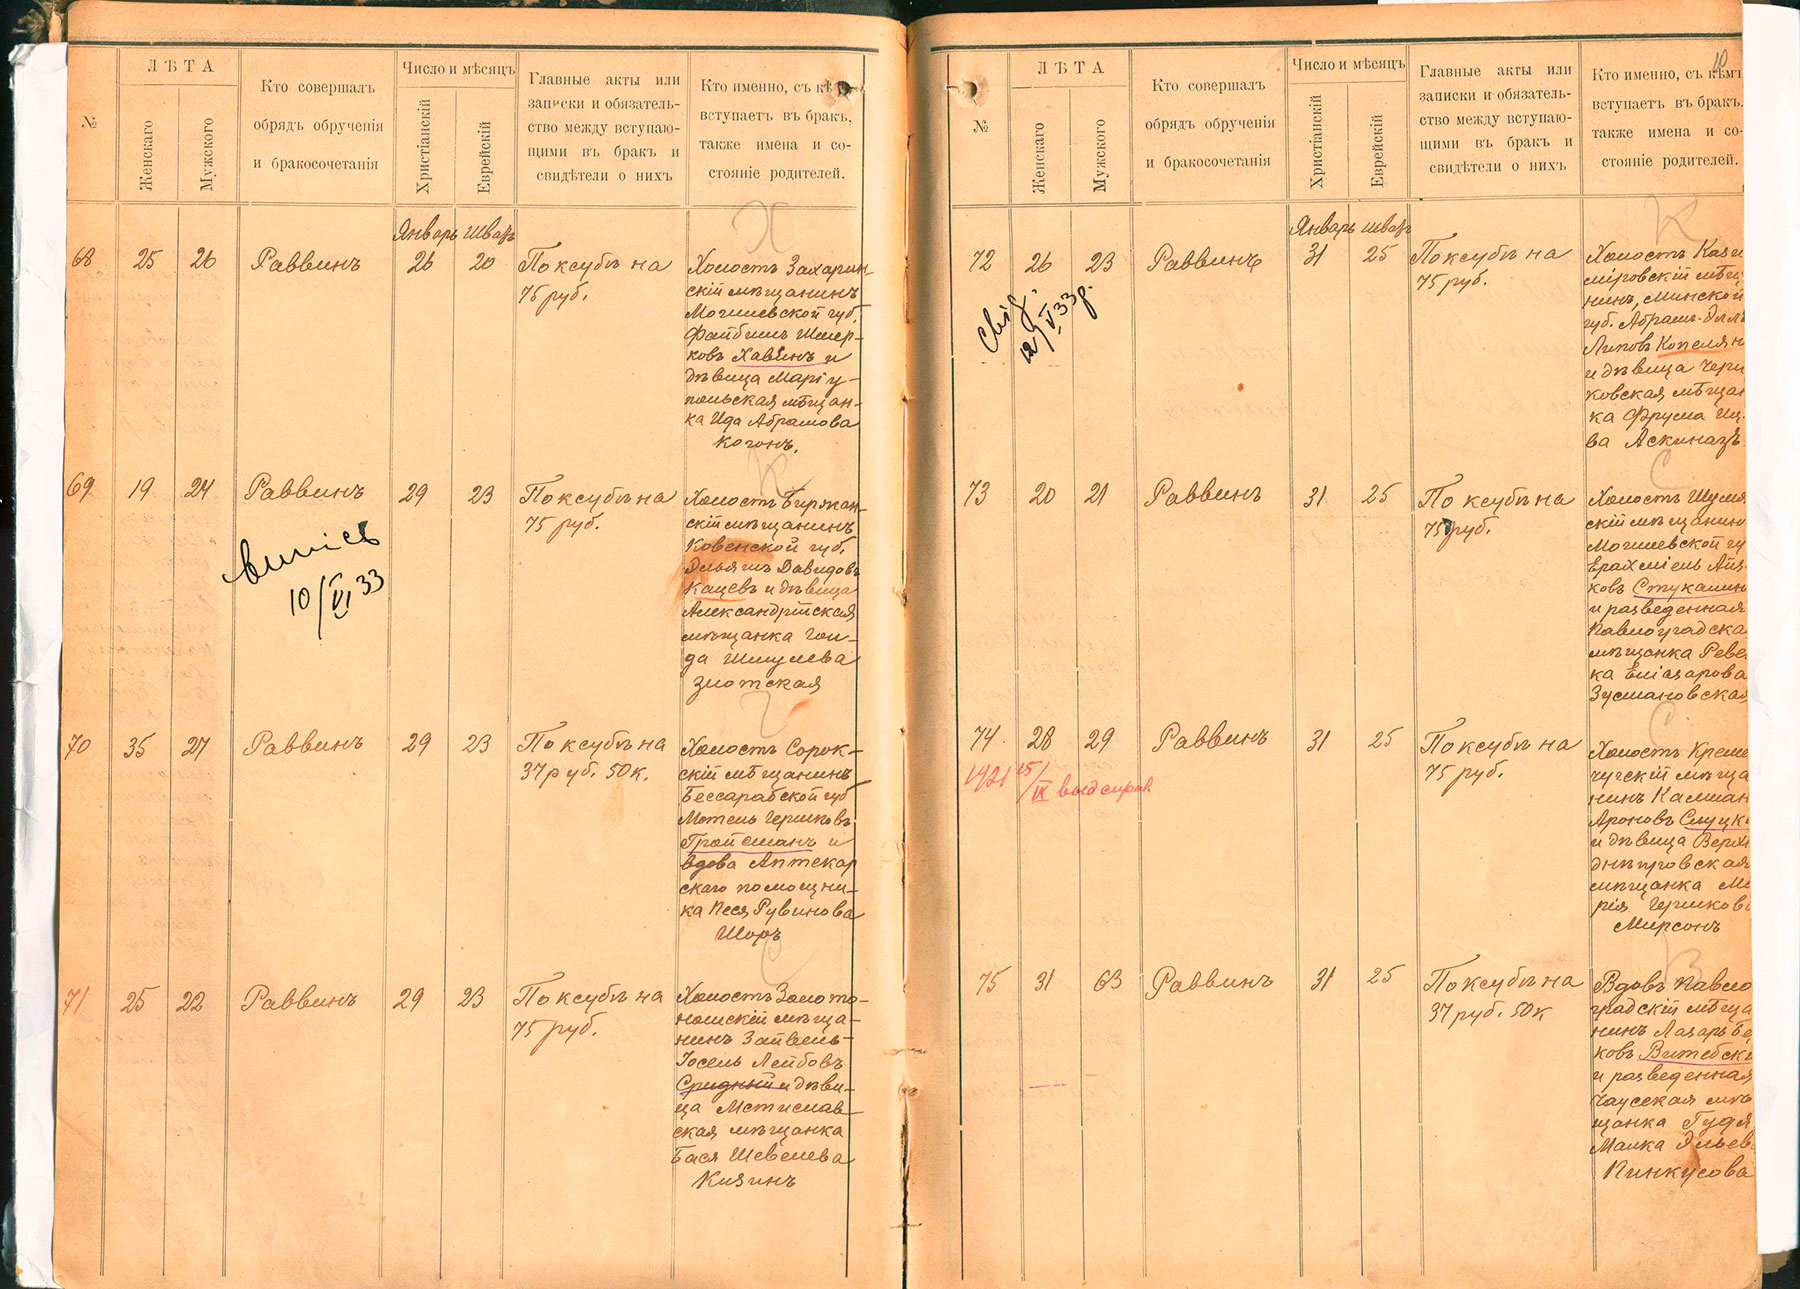 №
ЛѢТА
Женскаго
Мужского
Кто совершалъ
обрядъ обрученія
и бракосочетанія
Число и мѣсяцъ
Христіанскій
Еврейскій
Главные акты или
записки и обязатель-
ство между вступаю-
щими въ бракъ и
свидѣтели о нихъ
Кто именно, съ кѣмъ
вступаетъ въ бракъ,
также имена и со-
стояніе родителей.
Январь Шватъ
Х
68 25 26 Раввинъ 26 20
По ксубѣ на
75 руб.
Холостъ Захарин-
скій мѣщанинъ
Могилевской губ.
Файбишъ Шмер-
ковъ Хавинъ и
дѣвица Маріу-
польская мѣщан-
ка Ида Абрамова
Когонъ.
К
69 19 24 Раввинъ 29 23
По ксубѣ на
75 руб.
10/VI 33
Холостъ Биржан-
скій мѣщанинъ
Ковенской губ.
Эльяшъ Давидовъ
Кацевъ и дѣвица
Александрійская
мѣщанка Гол-
да Шмулева
Злотская
Г
70 35 27 Раввинъ 29 23
По ксубѣ на
37 руб. 50 к.
Холостъ Сорок-
скій мѣщанинъ
Бессарабской губ
Мотель Гершковъ
Тройсманъ и
вдова Аптекар
скаго помощни-
ка Песя Рувинова
Шоръ
С
71 25 22 Раввинъ 29 23
По ксубѣ на
75 руб.
Холостъ Золото-
ношскій мѣща-
нинъ Зайвель-
Іосель Лейбовъ
Сридный и дѣви-
ца Мстислав-
ская мѣщанка
Бася Шевелева
Кизинъ
10
№
ЛѢТА
Женскаго
Мужского
Кто совершалъ
обрядъ обрученія
и бракосочетанія
Число и мѣсяцъ
Христіанскій
Еврейскій
Главные акты или
записки и обязатель-
ство между вступаю-
щими въ бракъ и
свидѣтели о нихъ
Кто именно, съ кѣмъ
вступаетъ въ бракъ,
также имена и со-
стояніе родителей.
Январь Шватъ
К
72 26 23 Раввинъ 31 25
По ксубѣ на
75 руб.
12/V 33 р.
Холостъ Кази
міровскій мѣщ
нинъ, Минской
губ. Абрамъ-
Липовъ Копелян
и дѣвица Чери
ковская мѣщан
ка Фрума Иц
ва Аскиназъ
С
73 20 21 Раввинъ 31 25
По ксубѣ на
75 руб.
Холостъ Шумя
скій мѣщанин
Могилевской гу
Ерахміель Айз
ковъ Стукалин
и разведенная
Павлоградска
мѣщанка Реве
ка Еліазарова
Зусмановская
С
74 28 29 Раввинъ 31 25
По ксубѣ на
75 руб.
1421 15/IX выд справ.
Холостъ Креме
чугскій мѣща
нинъ Калман
Ароновъ Слуцк
и дѣвица Верхн
днѣпровская
мѣщанка Ма
рія Гершкова
Мирсонъ
В
75 31 63 Раввинъ 31 25
По ксубѣ на
37 руб. 50 к
Вдовъ Павло
градскій мѣща
нинъ Лазарь Бе
ковъ Витебски
и разведенная
Чаусская мѣ
щанка Гудя
Малка Эльев
Пинкусова